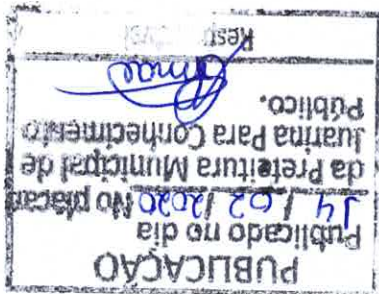 PUBLICAÇÃO
Publicado no dia
14 / 02 / 2020 No placar
da Prefeitura Municipal de
Juarina Para Conhecimento
Público.